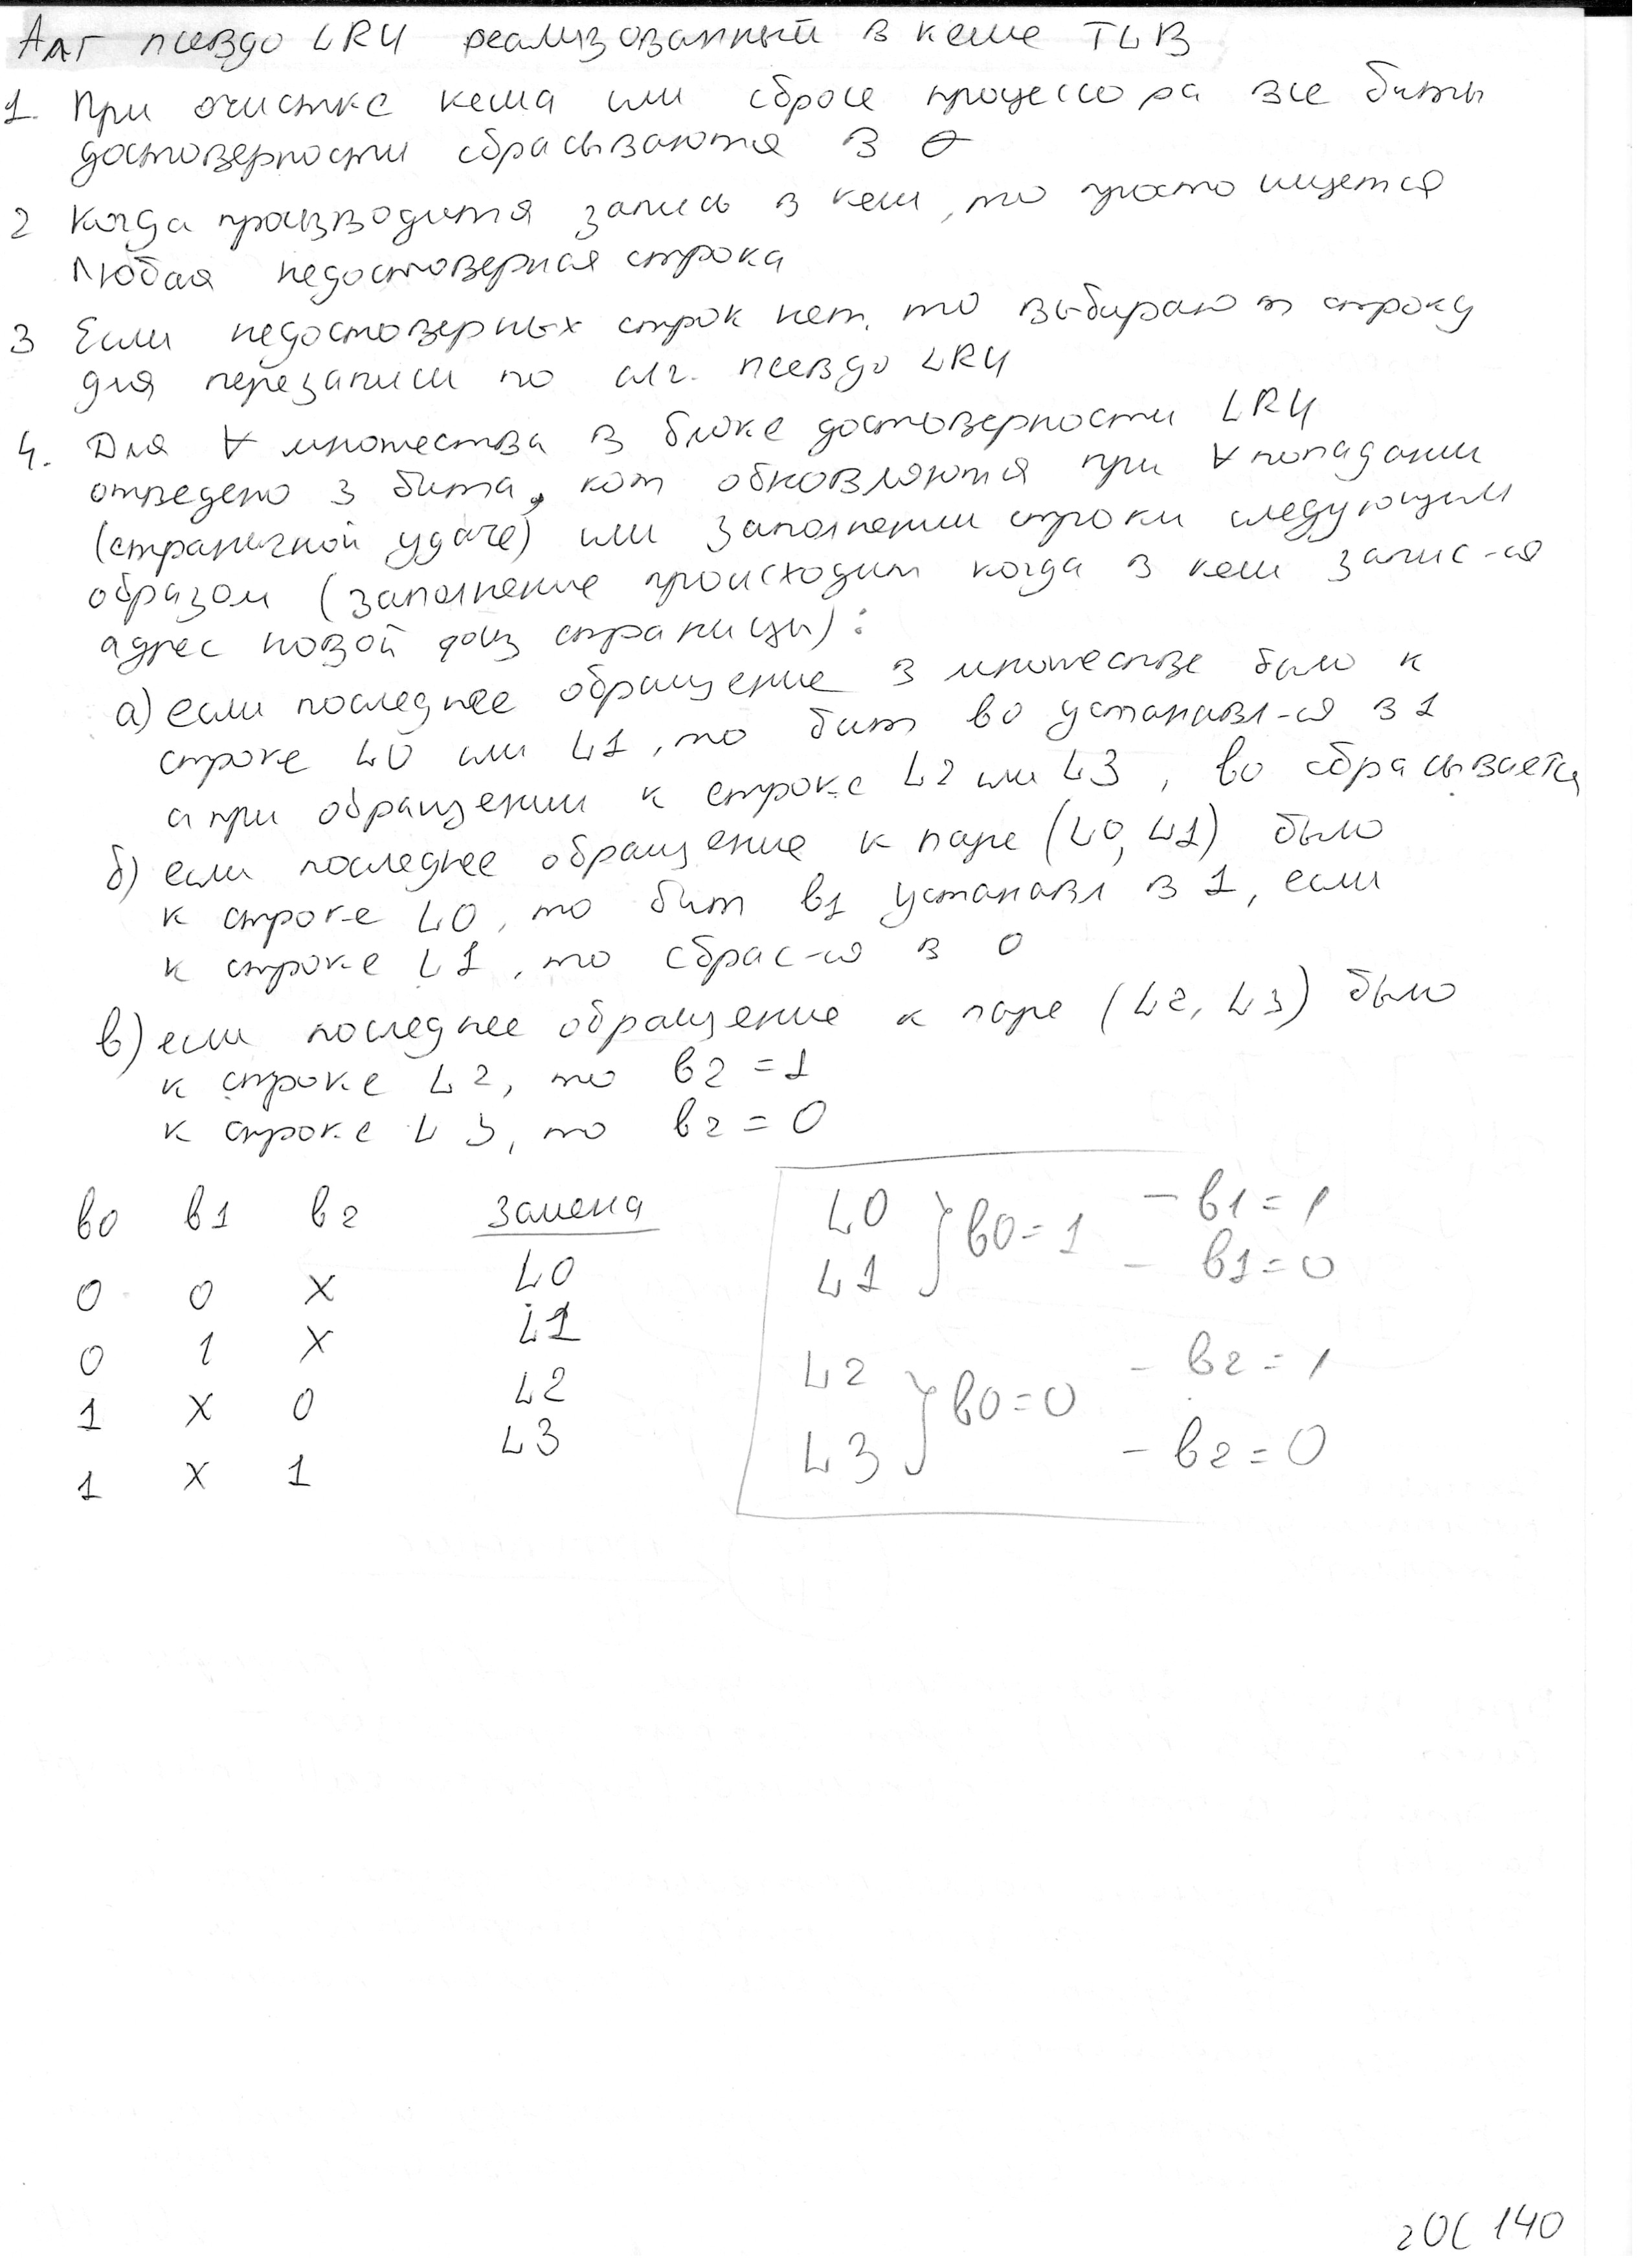 Алг псевдо LRU реализованный в кеше TLB
1. При очистке кеша или сбросе процессора все биты
достоверности сбрасываются в 0
2 Когда производится запись в кеш, то просто ищется
любая недостоверная строка
3 Если недостоверных строк нет, то выбирают строку
для перезаписи по алг. псевдо LRU
4. Для ∀ множества в блоке достоверности LRU
отведено 3 бита, кот обновляются при ∀ попадании
(страничной удаче) или заполнении строки следующим
образом (заполнение происходит когда в кеш запис-ся
адрес новой физ страницы):
а) если последнее обращение в множестве было к
строке L0 или L1, то бит b0 устанавл-ся в 1
а при обращении к строке L2 или L3, b0 сбрасывается
б) если последнее обращение к паре (L0, L1) было
к строке L0, то бит b1 устанавл в 1, если
к строке L1, то сбрас-ся в 0
в) если последнее обращение к паре (L2, L3) было
к строке L2, то b2 = 1
к строке L3, то b2 = 0
b0 b1 b2 замена
0 0 X L0
0 1 X L1
1 X 0 L2
1 X 1 L3
L0 } b0 = 1 - b1 = 1
L1 - b1 = 0
L2 } b0 = 0 - b2 = 1
L3 - b2 = 0
2ОС 140